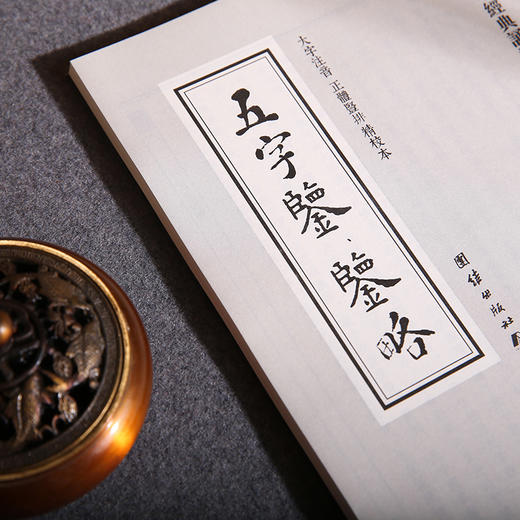 經典誦
大字注音 正體豎排 精校本
五字鑒、鑒略
團结出版社